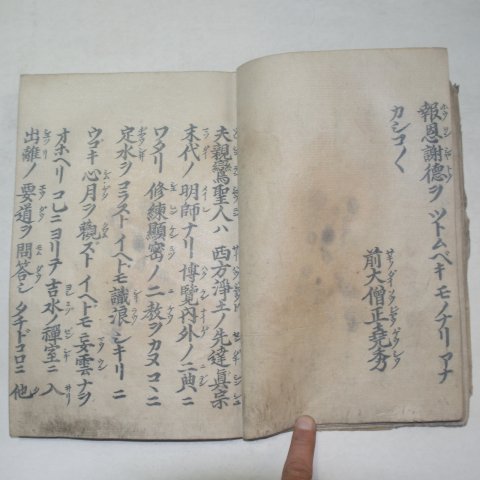 報恩謝德ヲ ツトムベキ モノナリ アナ
カシコ〱
前大僧正堯秀
夫親鸞聖人ハ 西方淨土ノ先達眞宗
末代ノ 明師ナリ 博覽内外ノ二典ニ
ワタリ 修練顯密ノ 二教ヲカヌコヽニ
定水ヲ コラスト イヘドモ 識浪シキリ ニ
ウゴキ 心月ヲ 觀ズト イヘドモ 妄雲ナヲ
オホヘリ コレニヨリテ 吉水ノ 禪室ニ 入
出離ノ 要道ヲ 問答シ タチドコロニ 他